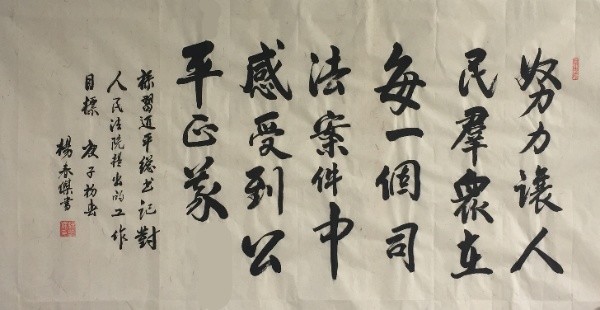 努力讓人
民羣衆在
每一個司
法案件中
感受到公
平正義
錄習近平總书記對
人民法院提出的工作
目標 庚子初春
楊春傑書